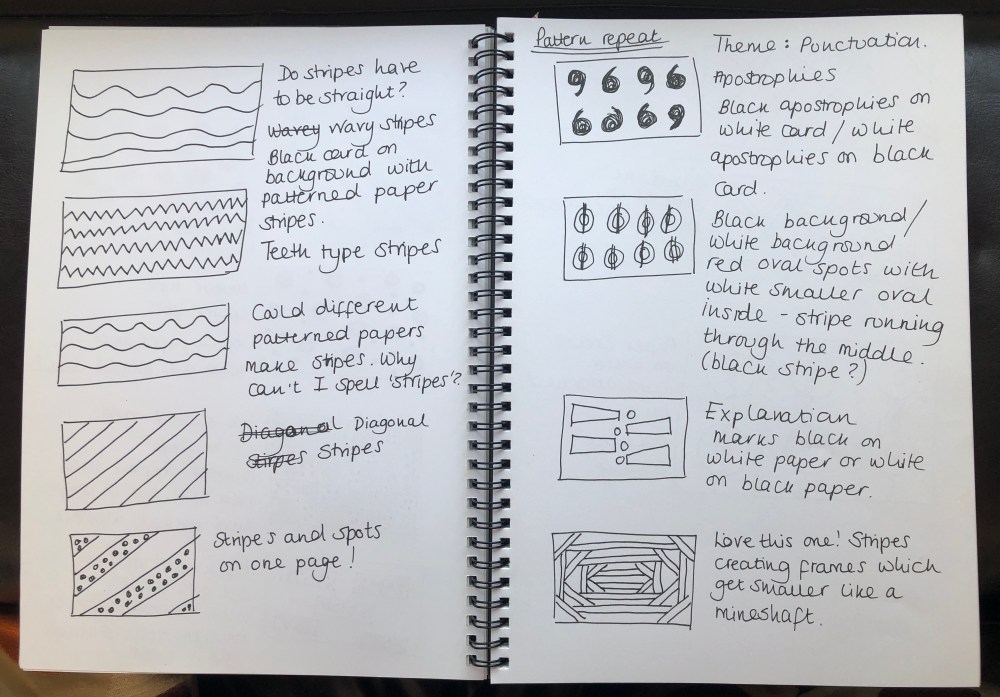 Do stripes have
to be straight?
Wavey Wavy stripes
Black card on
background with
patterned paper
stripes.
Teeth type stripes
Could different
patterned papers
make stipes. Why
can't I spell 'stripes'?
Diaganal Diagonal
Stirpes Stripes
Stripes and spots
on one page!
Pattern repeat
Theme: Punctuation.
Apostrophies
Black apostrophies on
white card/white
apostrophies on black
card.
Black background/
white background
red oval spots with
white smaller oval
inside - stripe running
through the middle.
(black stripe?)
Explanation
marks black on
white paper or white
on black paper.
Love this one! Stripes
creating frames which
get smaller like a
mineshaft.